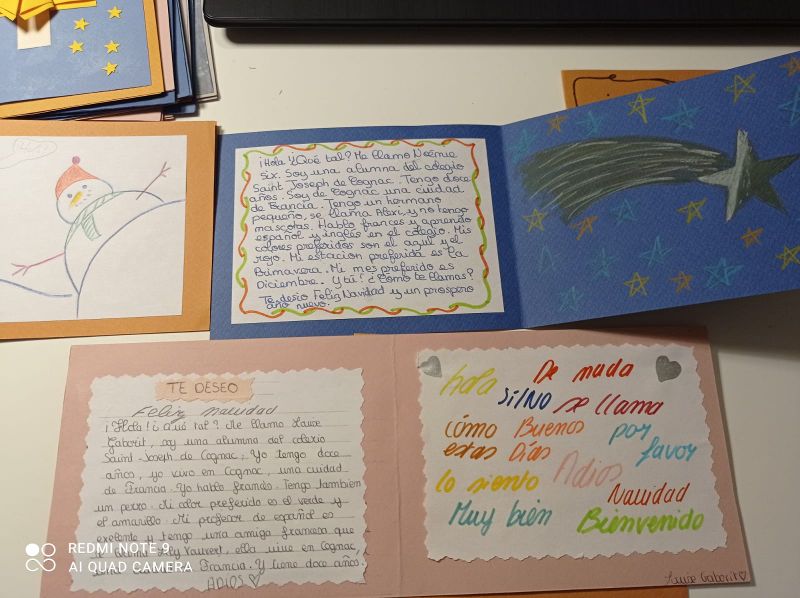 ¡Hola ¿Qué tal? Me llamo Noémie
Six. Soy una alumna del colegio
Saint Joseph de Cognac. Tengo doce
años. Soy de Cognac una ciudad
de Francia. Tengo un hermano
pequeño, se llama Alexi, y no tengo
mascotas. Hablo frances y aprendo
español y inglés en el colegio. Mis
colores preferidos son el azul y el
rojo. Mi estacion preferida es la
Primavera. Mi mes preferido es
Diciembre. Y tú! ¿Cómo te llamas?
Te desio Feliz Navidad y un prospero
año nuevo.
TE DESEO
Feliz navidad
¡Hola! ¿Qué tal? Me llamo Louise
Gaborit, soy una alumna del colexio
Saint-Joseph de Cognac, Yo tengo doce
años, yo vivo en Cognac, una cuidad
de Francia. Yo hablo francés. Tengo tambien
un perro. Mi color preferido es el verde y
el amarillo. Mi profesor de español es
exelente y tengo una amiga francesa que
Lily Vauvert, ella vive en Cognac,
Francia. Y tiene doce años.
ADIOS
Hola
De nada
Si/No
se llama
cómo
estas
Buenos
Días
por
favor
lo siento
Adios
Navidad
Muy bien
Bienvenido
Louise Gaborit
REDMI NOTE 9
AI QUAD CAMERA